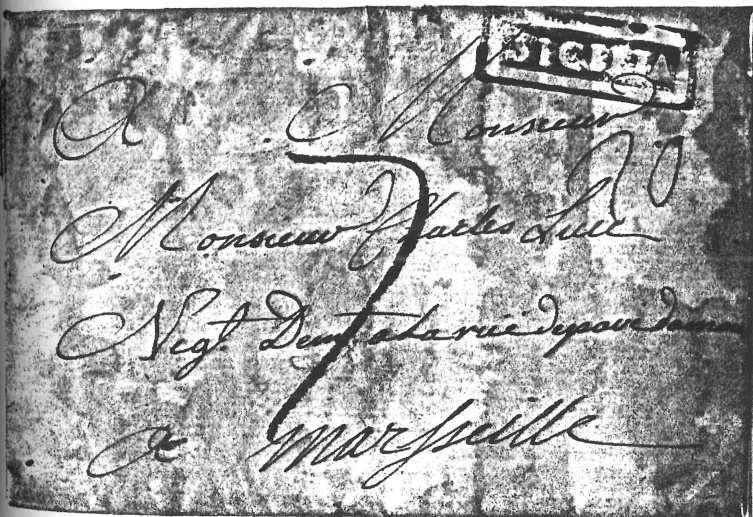 SICRETA
A Monsieur
Monsieur Charles
7
Negt Demt a la rue
a Marsseille